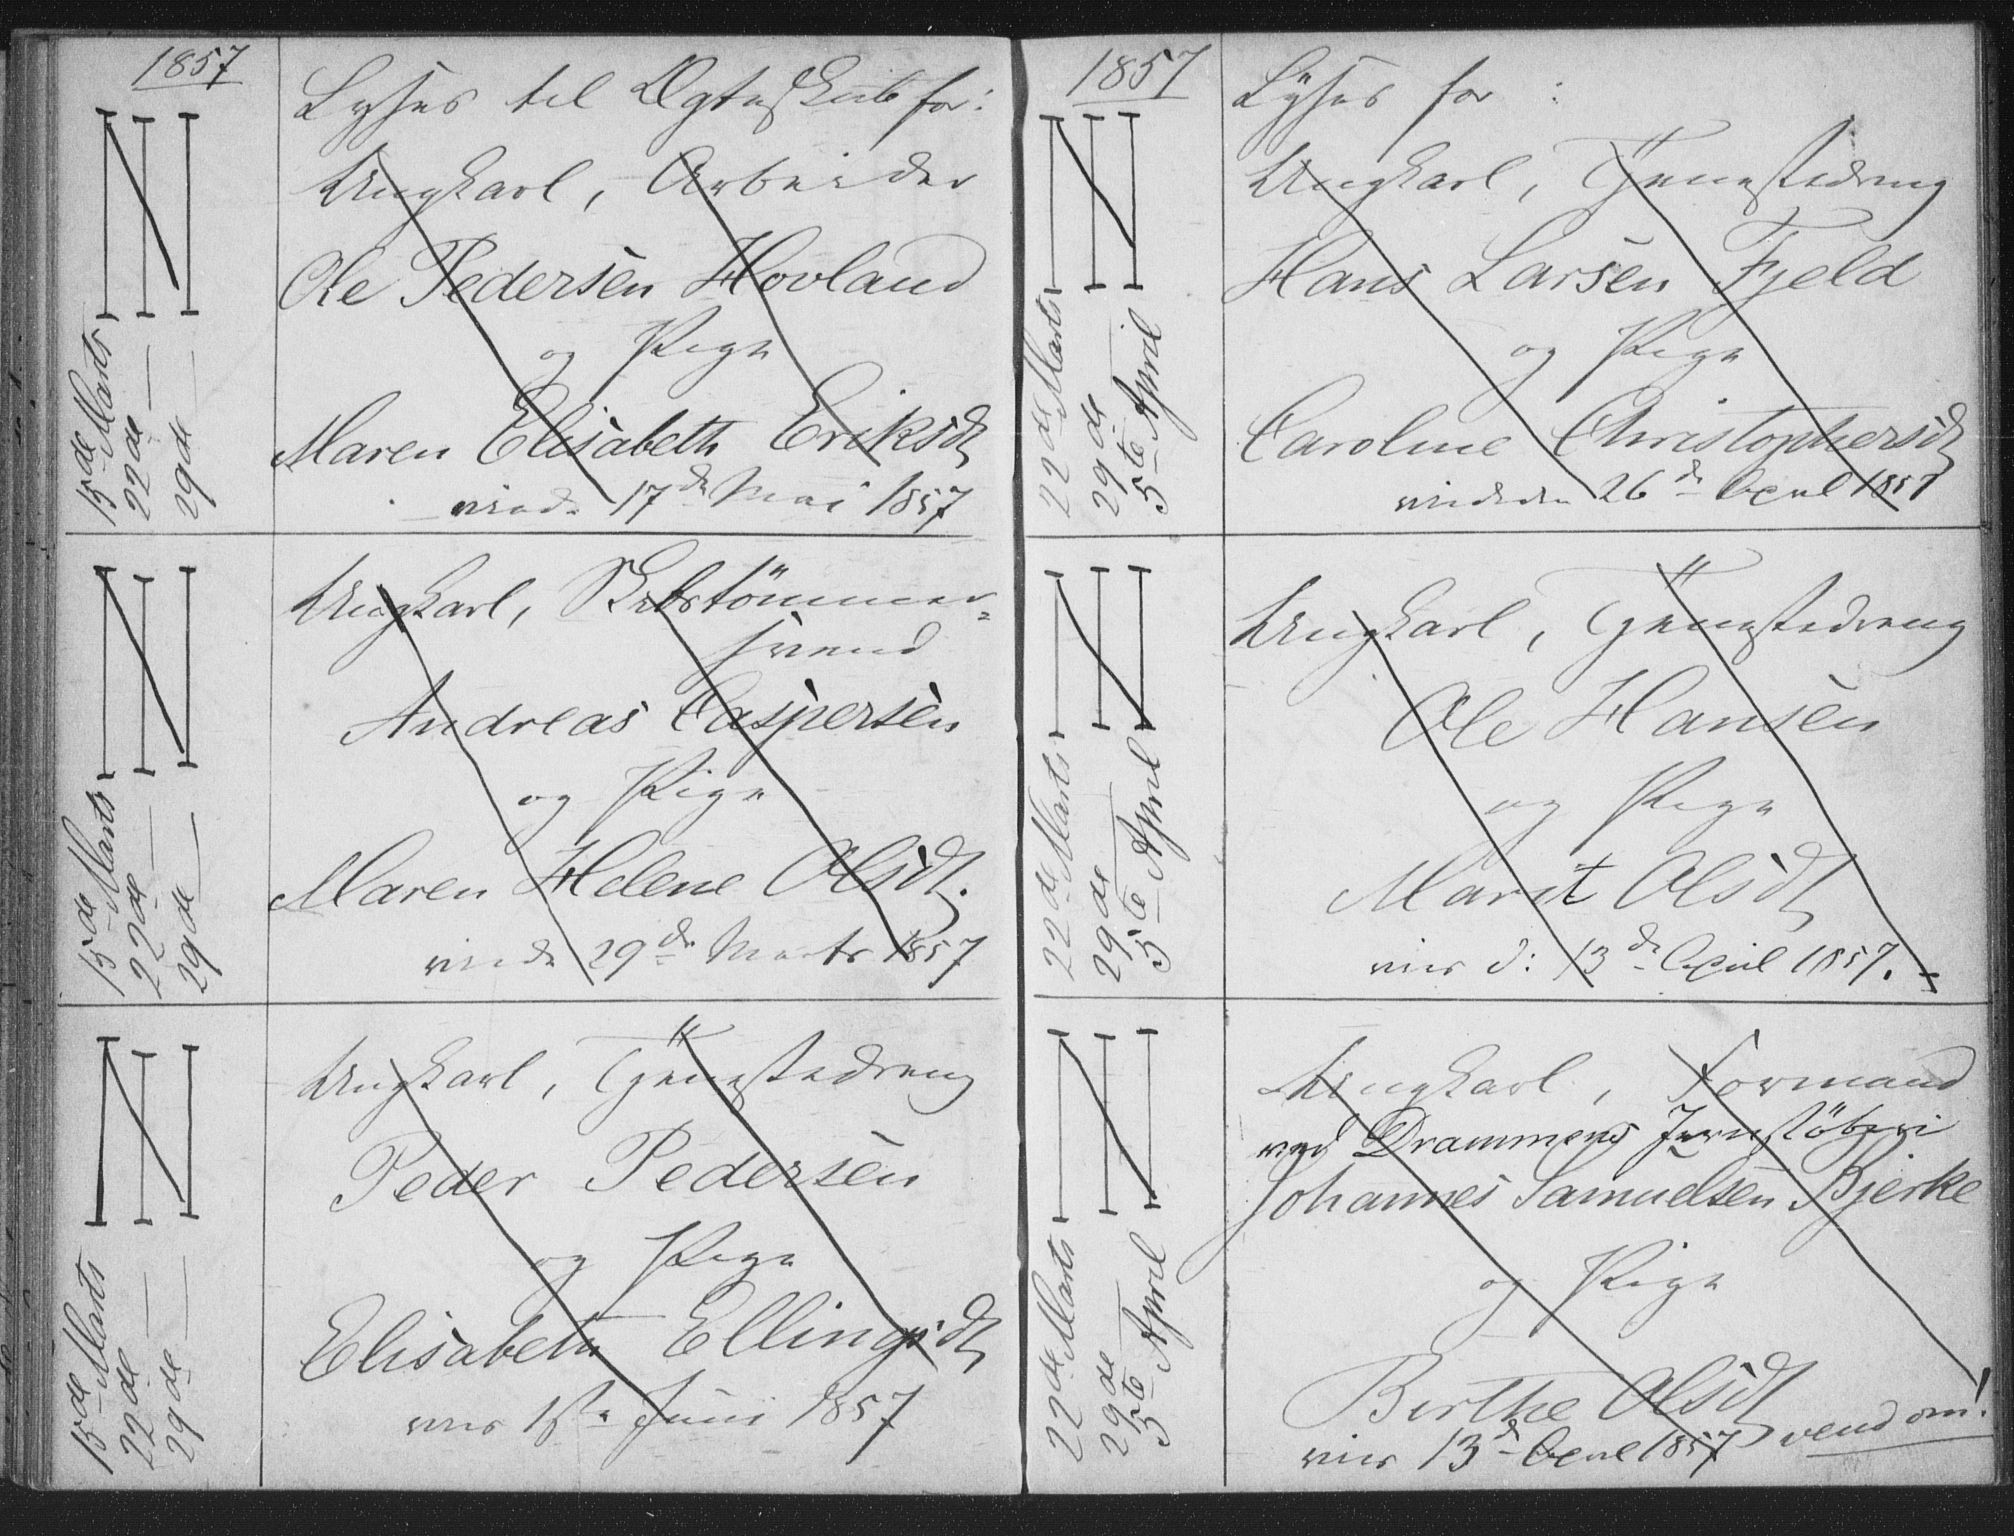 1857
Lyses til Ægteskab for:
15de Marts
22de —
29de —
Ungkarl, Arbeider
Ole Pedersen Hovland
og Pige
Maren Elisabeth Eriksdt
viede 17de Mai 1857
15de Marts
22de —
29de —
Ungkarl,
svend
Andreas Caspersen
og Pige
Maren Helene Olsdt.
viede 29de Marts 1857
15de Marts
22de —
29de —
Ungkarl, Tjenestedreng
Peder Pedersen
og Pige
Elisabeth Ellingsdt
vies 1ste Juni 1857
1857
Lyses for :
22de Marts
29de
5te April
Ungkarl, Tjenestedreng
Hans Larsen Fjeld
og Pige
Caroline Christophersdt
26de April 1857
22de Marts
29de —
5te April
Ungkarl, Tjenestedreng
Ole Hansen
og Pige
Marit Olsdt
vies d: 13de April 1857.
22de Marts
29de —
5te April
Ungkarl, Formand
ved Drammens Jernstöberi
Johannes Samuelsen Bjerke
og Pige
Birthe Olsdt
vies 13d April 1857 vend om!